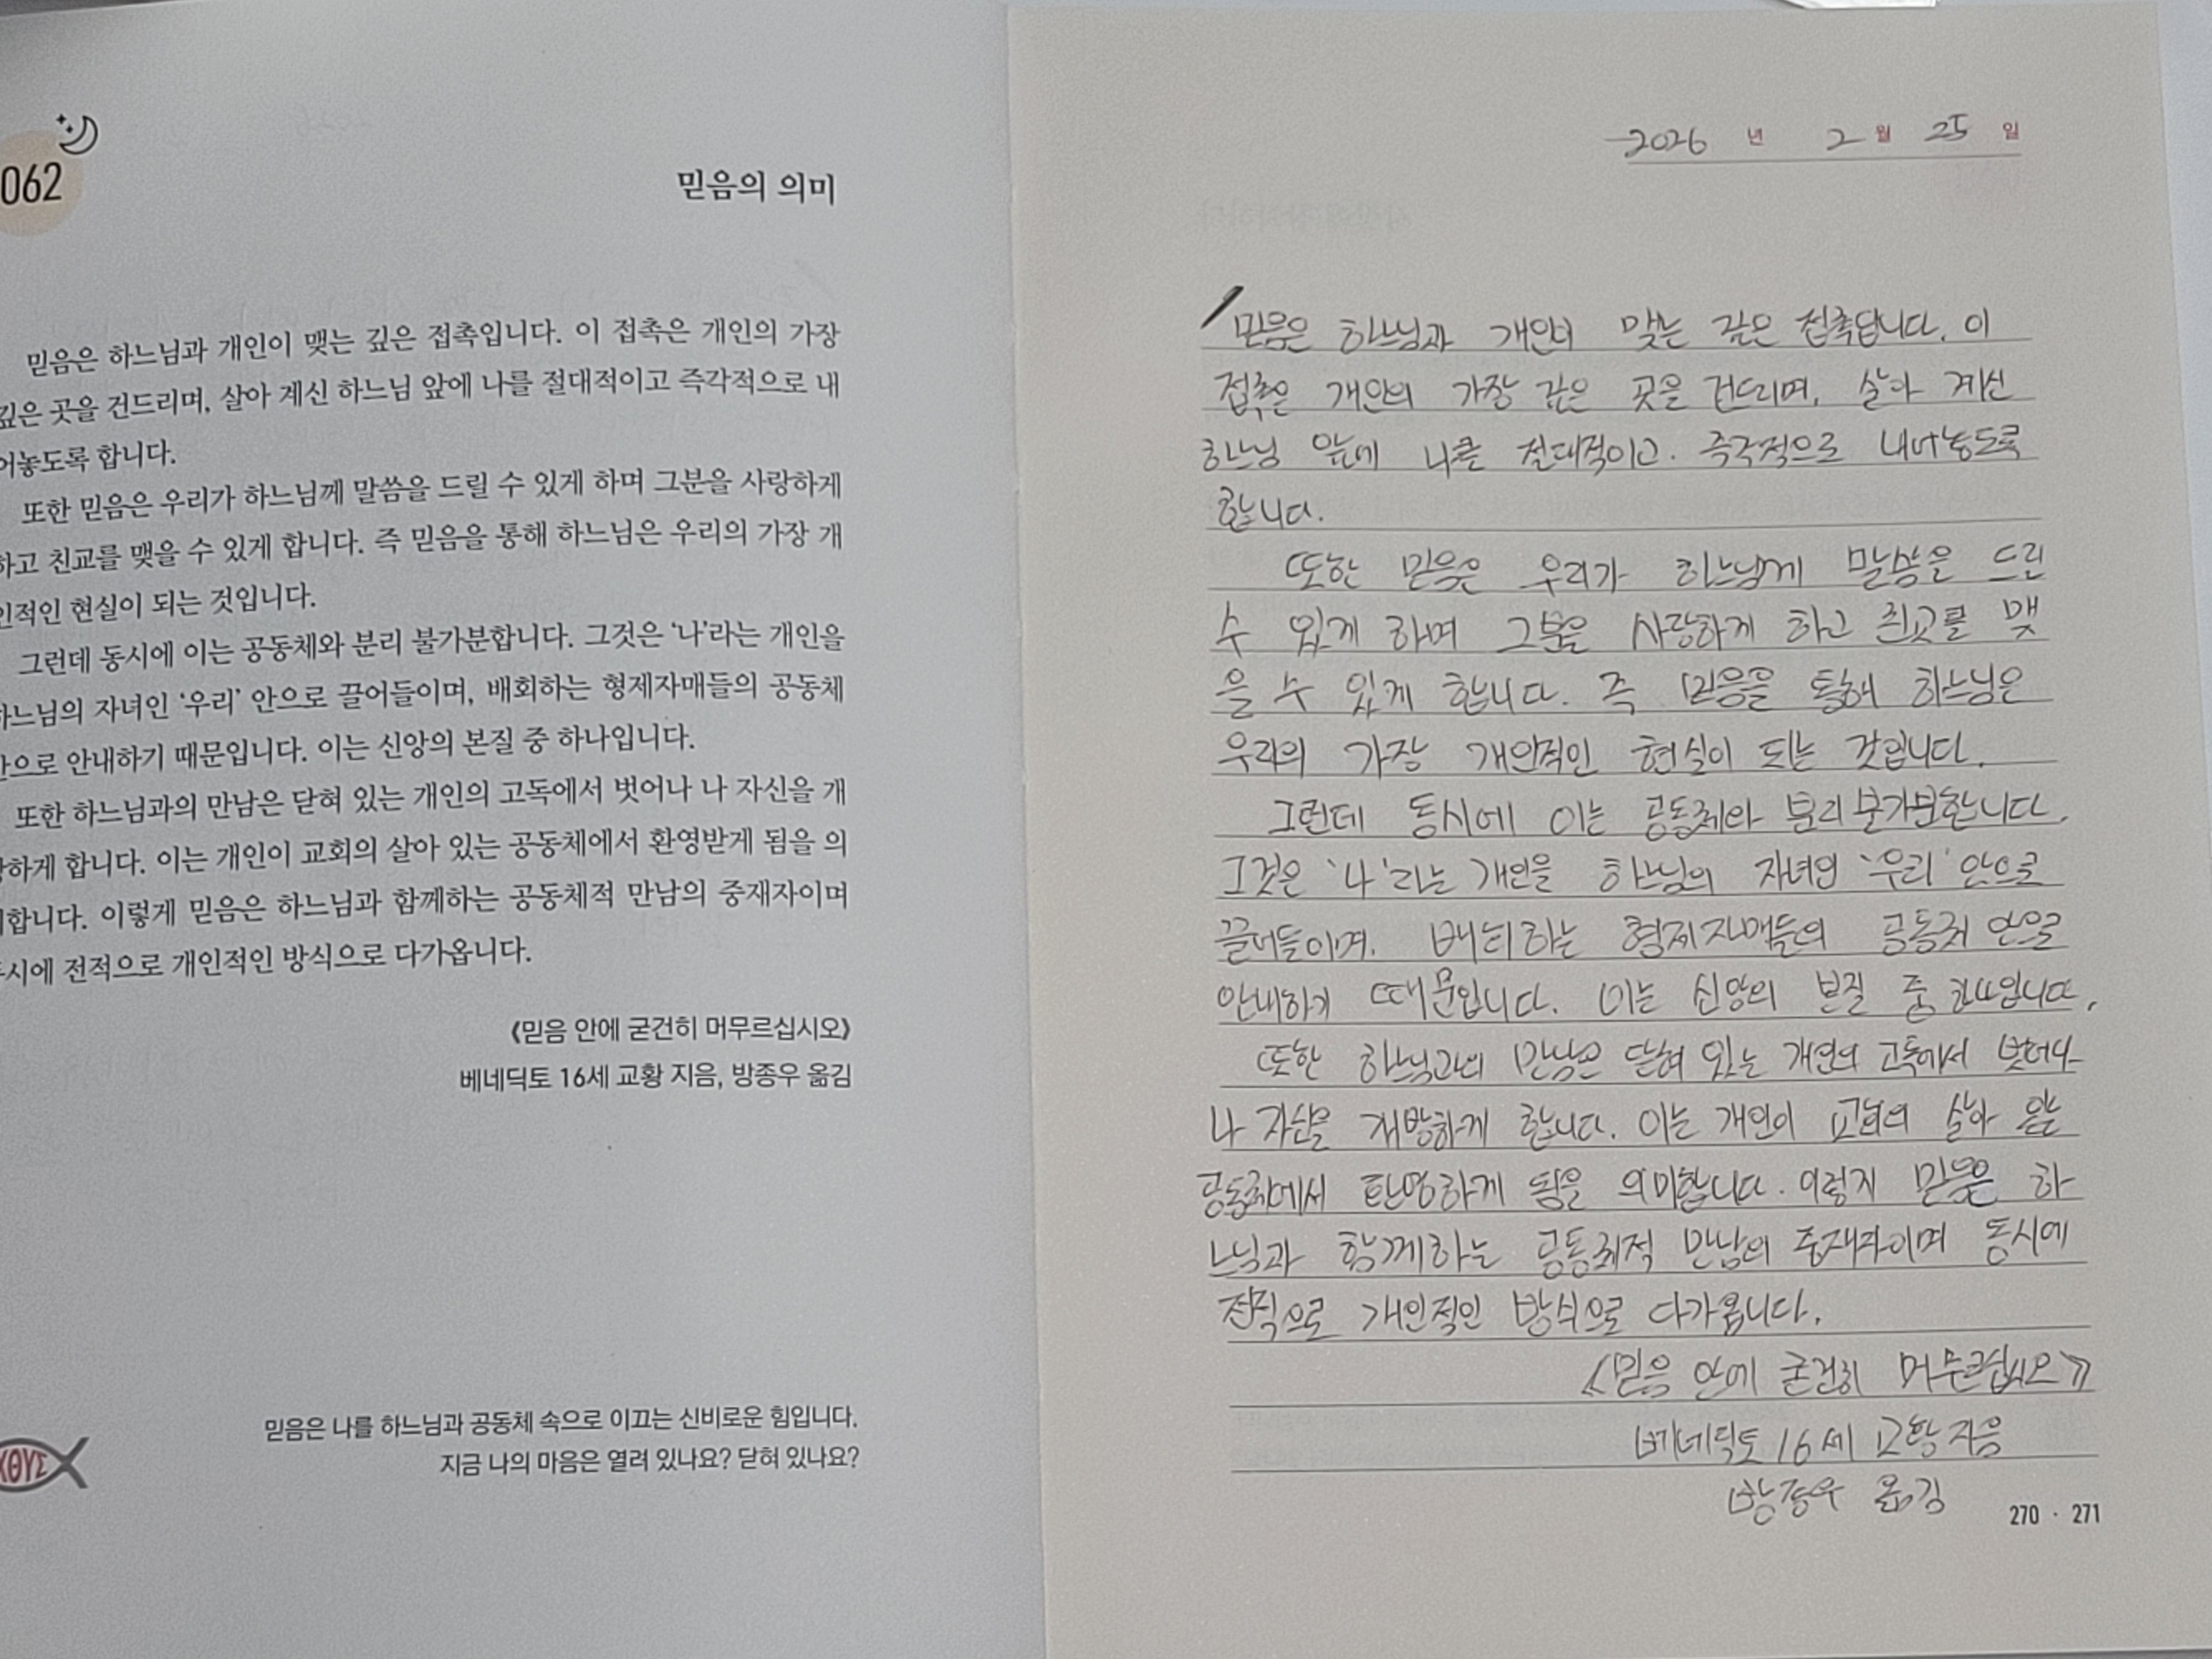 062
믿음의 의미
믿음은 하느님과 개인이 맺는 깊은 접촉입니다. 이 접촉은 개인의 가장
깊은 곳을 건드리며, 살아 계신 하느님 앞에 나를 절대적이고 즉각적으로 내
어놓도록 합니다.
또한 믿음은 우리가 하느님께 말씀을 드릴 수 있게 하며 그분을 사랑하게
하고 친교를 맺을 수 있게 합니다. 즉 믿음을 통해 하느님은 우리의 가장 개
인적인 현실이 되는 것입니다.
그런데 동시에 이는 공동체와 분리 불가분합니다. 그것은 ‘나’라는 개인을
하느님의 자녀인 ‘우리’ 안으로 끌어들이며, 배회하는 형제자매들의 공동체
안으로 안내하기 때문입니다. 이는 신앙의 본질 중 하나입니다.
또한 하느님과의 만남은 닫혀 있는 개인의 고독에서 벗어나 나 자신을 개
방하게 합니다. 이는 개인이 교회의 살아 있는 공동체에서 환영받게 됨을 의
미합니다. 이렇게 믿음은 하느님과 함께하는 공동체적 만남의 중재자이며
동시에 전적으로 개인적인 방식으로 다가옵니다.
《믿음 안에 굳건히 머무르십시오》
베네딕토 16세 교황 지음, 방종우 옮김
믿음은 나를 하느님과 공동체 속으로 이끄는 신비로운 힘입니다.
지금 나의 마음은 열려 있나요? 닫혀 있나요?
ΧΘΥΣ
2026 년 2 월 25 일
믿음은 하느님과 개인이 맺는 깊은 접촉입니다. 이
접촉은 개인의 가장 깊은 곳을 건드리며, 살아 계신
하느님 앞에 나를 절대적이고. 즉각적으로 내어놓도록
합니다.
또한 믿음은 우리가 하느님께 말씀을 드릴
수 있게 하며 그분을 사랑하게 하고 친교를 맺
을 수 있게 합니다. 즉 믿음을 통해 하느님은
우리의 가장 개인적인 현실이 되는 것입니다.
그런데 동시에 이는 공동체와 분리 불가분합니다.
그것은 '나'라는 개인을 하느님의 자녀인 '우리' 안으로
끌어들이며. 배회하는 형제자매들의 공동체 안으로
안내하기 때문입니다. 이는 신앙의 본질 중 하나입니다.
또한 하느님과의 만남은 닫혀 있는 개인의 고독에서 벗어나
나 자신을 개방하게 합니다. 이는 개인이 교회의 살아 있는
공동체에서 환영하게 됨을 의미합니다. 이렇게 믿음은 하
느님과 함께하는 공동체적 만남의 중재자이며 동시에
전적으로 개인적인 방식으로 다가옵니다.
《믿음 안에 굳건히 머무르십시오》
베네딕토 16세 교황 지음
방종우 옮김
270 · 271